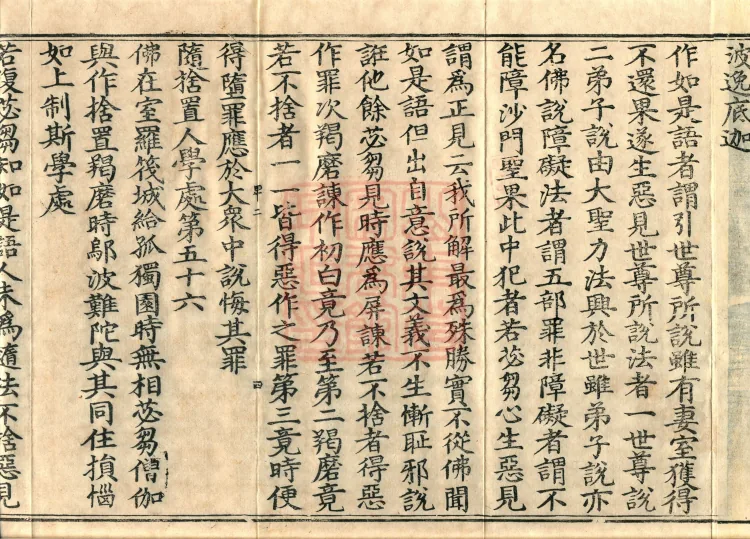 波逸底迦
作如是語者謂引世尊所說雖有妻室獲得
不還果遂生惡見世尊所說法者一世尊說
二弟子說由大聖力法興於世雖弟子說亦
名佛說障礙法者謂五部罪非障礙者謂不
能障沙門聖果此中犯者若苾芻心生惡見
謂爲正見云我所解最爲殊勝實不從佛聞
如是語但出自意說其文義不生慚耻邪說
誑他餘苾芻見時應爲屏諫若不捨者得惡
作罪次羯磨諫作初白竟乃至第二羯磨竟
若不捨者一一皆得惡作之罪第三竟時便
得墮罪應於大衆中說悔其罪
隨捨置人學處第五十六
佛在室羅筏城給孤獨園時無相苾芻僧伽
與作捨置羯磨時鄔波難陀與其同住損惱
如上制斯學處
若復苾芻知如是語人未爲隨法不捨惡見